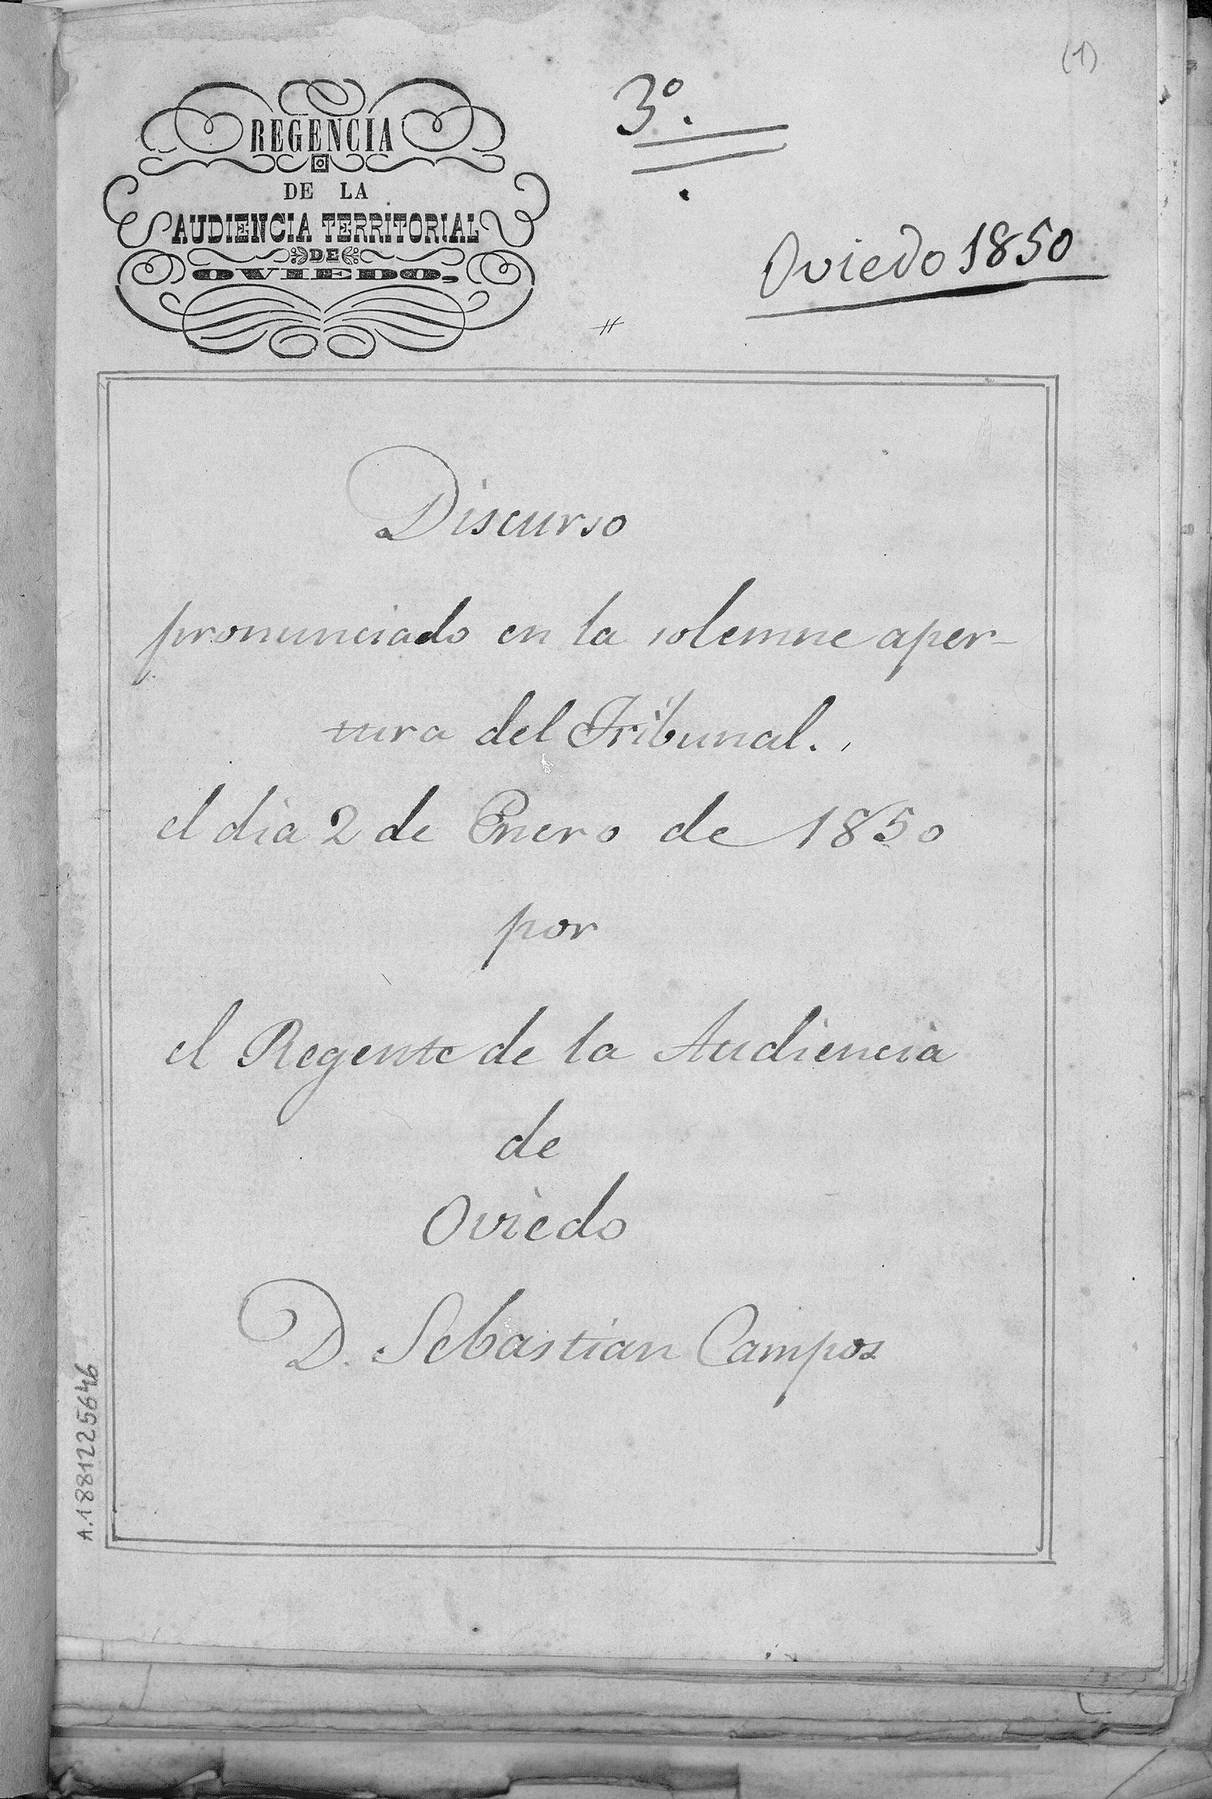 (1)
REGENCIA
DE LA
AUDIENCIA TERRITORIAL
DE
OVIEDO.
3º.
Oviedo 1850
Discurso
pronunciado en la solemne aper-
tura del Tribunal.
el dia 2 de Enero de 1850
por
el Regente de la Audiencia
de
Oviedo
D. Sebastian Campos
A.1881225646